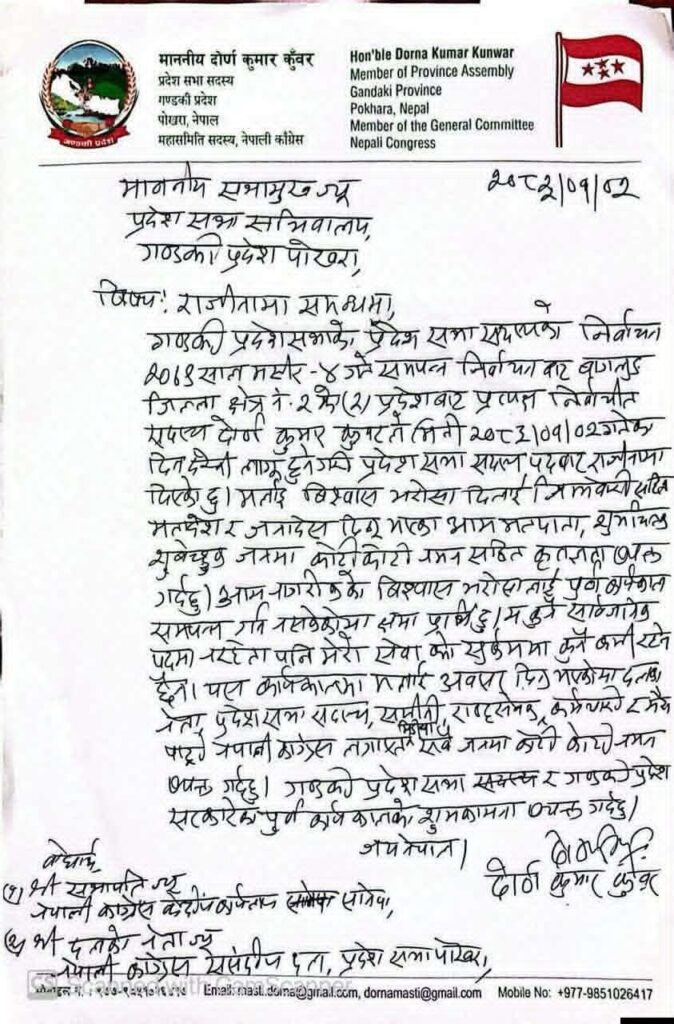 माननीय दोर्ण कुमार कुँवर
प्रदेश सभा सदस्य
गण्डकी प्रदेश
पोखरा, नेपाल
महासमिति सदस्य, नेपाली काँग्रेस
Hon'ble Dorna Kumar Kunwar
Member of Province Assembly
Gandaki Province
Pokhara, Nepal
Member of the General Committee
Nepali Congress
गण्डकी प्रदेश
२०८२/०१/०२
माननीय सभामुख ज्यू
प्रदेश सभा सचिवालय,
गण्डकी प्रदेश पोखरा,
विषय: राजीनामा सम्बन्धमा,
गण्डकी प्रदेश सभाके प्रदेश सभा सदस्यको निर्वाचन
साल मंसीर - ४ गते सम्पन्न निर्वाचन बाट बागलुङ
जिल्ला क्षेत्र नं. २ के (२) प्रदेशबाट प्रत्यक्ष निर्वाचीत
सदस्य दोर्ण कुमार कुवरले मिती गतेका
दिन देखी लागू हुनेगरी प्रदेश सभा सदस्य पदबाट राजीनामा
दिएको छु। मलाई बिश्वास भरोसा दिलाई जिम्मेवारी सहित
मतादेश र जनादेस दिनु भएका आम मतदाता, शुभचिन्तक
शुवेच्छुक जनमा कोटी कोटी नमन सहित कृतज्ञता व्यक्त
गर्दछु। आम नागरीकके बिश्वास भरोसालाई पुर्ण कार्यकाल
सम्पन्न गर्न नसकेकोमा क्षमा प्रार्थी छु। म कुनै सार्वजनिक
पदमा नरहेता पनि मेरो सेवा को सुकर्ममा कुनै कमी रहने
छैन। यस कार्यकालमा मलाई अवसर दिनु भएकोमा दलका
नेता, प्रदेश सभा सदस्य, समीती, राष्ट्रसेवक, कर्मचारी र मेरो
मिडिया
पार्टी नेपाली कांग्रेस लगायत सबै जनमा कोटी कोटी नमन
व्यक्त गर्दछु। गण्डकी प्रदेश सभा सदस्य र गण्डकी प्रदेश
सरकारके पुर्ण कार्यकालको शुभकामना व्यक्त गर्दछु।
जय नेपाल।
दोर्ण कुमार कुँवर
बोधार्थ
(१) श्री सभापति ज्यू
नेपाली कांग्रेस केन्द्रीय कार्यालय सानेपा,
(२) श्री दलका नेता ज्यू
नेपाली कांग्रेस संसदीय दल, प्रदेश सभा पोखरा,
CS Scanned with CamScanner
Email: masti.dorna@gmail.com, dornamasti@gmail.com
Mobile No: +977-9851026417